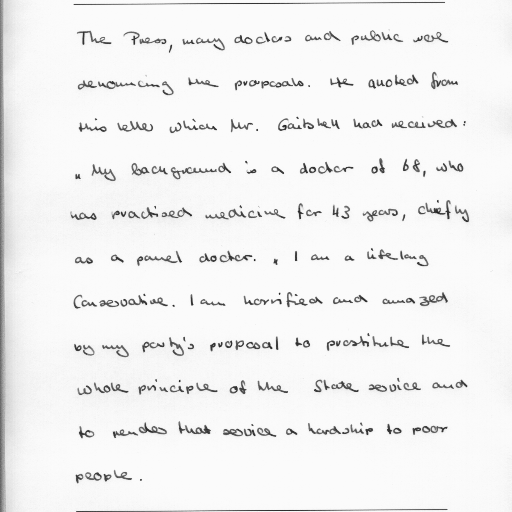 The Press, many doctors and public were
denouncing the proposals. He quoted from
this letter which Mr. Gaitskell had received:
"My background is a doctor of 68, who
has practised medicine for 43 years, chiefly
as a panel doctor. "I am a lifelong
Conservative. I am horrified and amazed
by my party's proposal to prostitute the
whole principle of the State service and
to render that service a hardship to poor
people.